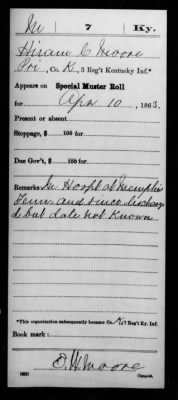 M 7 Ky.
Hiram C Moore
Pvt, Co. K, 3 Reg't Kentucky Inf.*
Appears on Special Muster Roll
for Apr 10, 1863.
Present or absent
Stoppage, $ 100 for
Due Gov't, $ 100 for
Remarks In Hospl at Memphis
Tenn. and since discharg
d but date not known
*This organization subsequently became Co. K, 7 Reg't Ky. Inf.
Book mark:
O. H. Moore
Copyist.